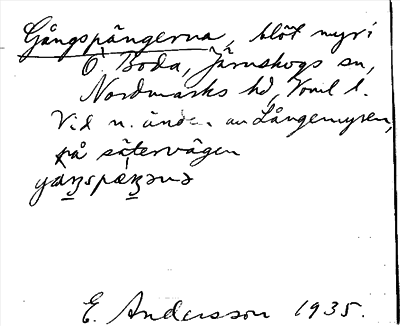 Gångspängerna, blöt myr i
Ö. Boda, Järnskogs sn,
Nordmarks hd, Vrml l.
Vid n. änden av Långemyren,
på sätervägen
E. Andersson 1935.